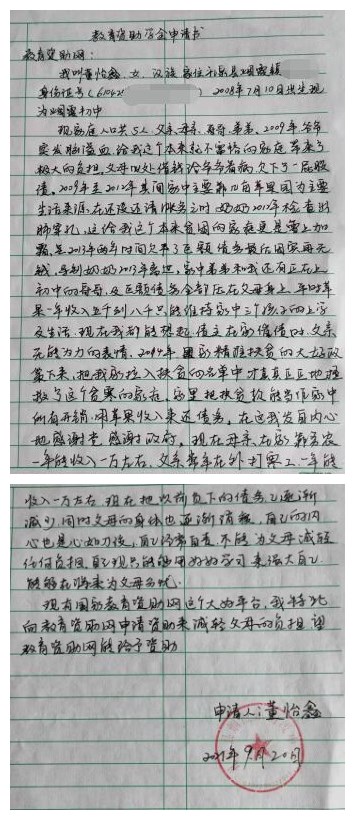 教育资助资金申请书
教育资助网:
我叫董怡鑫,女,汉族,家住礼泉县烟霞镇
身份证号(610425 ) 2008年7月10日出生现
为烟霞初中
现家庭人口共5人,父亲.母亲.哥哥.弟弟。2009年爷爷
突发脑溢血,给我这个本来就不富裕的家庭带来了
极大的负担,父母四处借钱给爷爷看病欠下了一屁股
债。2009年至2012年其间家中主要靠几亩苹果园为主要
生活来源,在还没还清账务之时奶奶2012年检查出
肺穿孔,这给我这个本来贫困的家庭更是雪上加
霜,至2013年两年时间欠下了巨额债务最后因实再无
钱,导制奶奶2013年离世,家中弟弟和我还有正在上
初中的哥哥,及巨额债务全部压在父母身上,年时苹
果一年收入五千到八千只能维持家中三个孩子的上学
及生活,现在我都能想起,债主在家偿债时,父亲
无能为力的表情,2014年国家精准扶贫的大好政
策下来,把我家拉入扶贫的名单中才真真正正地拯
救了这个贫寒的家庭,家里把扶贫款能当作家中
所有开销,用苹果收入来还债务。在这我发自内心
地感谢党,感谢政府。现在母亲在家务农
一年能收入一万左右,父亲常年在外打零工,一年能
收入一万左右,现在把以前负下的债务已逐渐
减少,同时父母的身体也逐渐消瘦,自己的内
心也是心如刀绞,自己经常自责,不能为父母减轻
任何负担,自己现只能够用好好学习来强大自己
能够在将来为父母分忧。
现有国家教育资助网这个大好平台,我特此
向教育资助网申请资助来减轻父母的负担,望
教育资助网能给予资助
申请人:董怡鑫
2021年9月20日